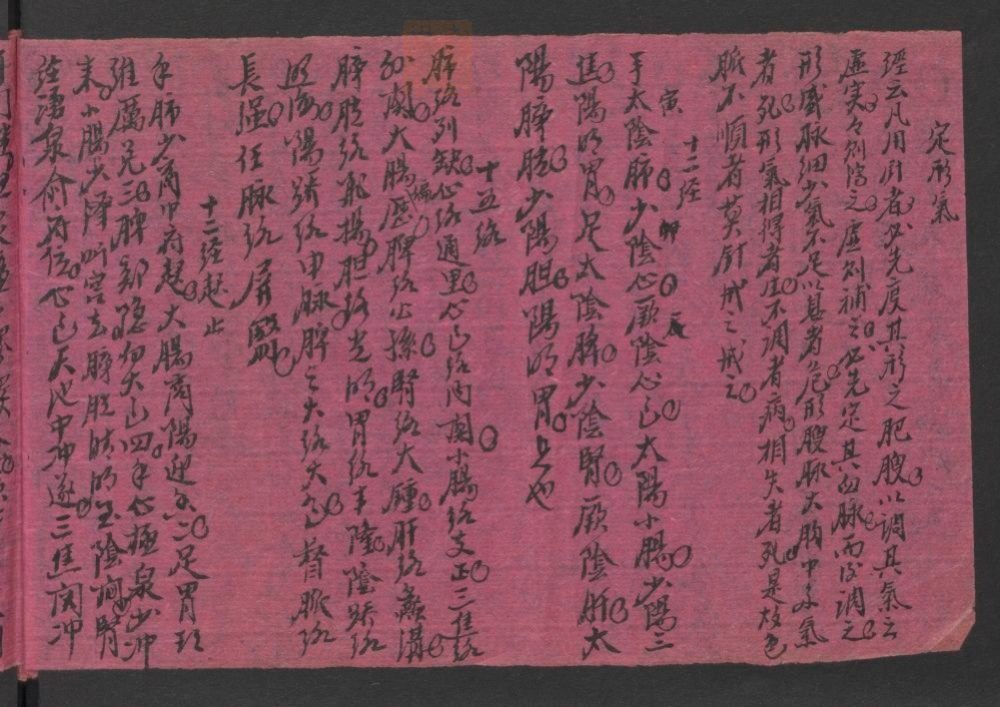 定形氣
經云凡用針者必先度其形之肥瘦以調其氣之
虛实々則瀉之虛則補之必先定其血脉而後調之
形盛脉細少氣不足以息者危形瘦脉大胸中多氣
者死形氣相得者生不調者病相失者死是故色
脉不順者莫針戒之戒之
十二經
寅 卯 辰
手太陰肺少陰心厥陰心包太陽小腸少陽三
焦陽明胃足太陰脾少陰腎厥陰肝太
陽膀胱少陽胆陽明胃是也
十五絡
肺絡列缺心絡通里心包絡内關小腸絡支正三焦絡
外關大腸偏歷脾絡公孫腎絡大鍾肝絡蠡溝
膀胱絡飛揚胆絡光明胃絡丰隆陰蹻絡
照海陽蹻絡申脉脾之大絡大包督脉絡
長強任脉絡屏翳
十二經起止
手肺少商中府起大腸商陽迎香二足胃
厲兌三脾部隱白大包四手心極泉少冲
来小腸少澤听宮去膀胱睛明至陰間腎
經湧泉俞府位心包天池中冲遂三焦関冲